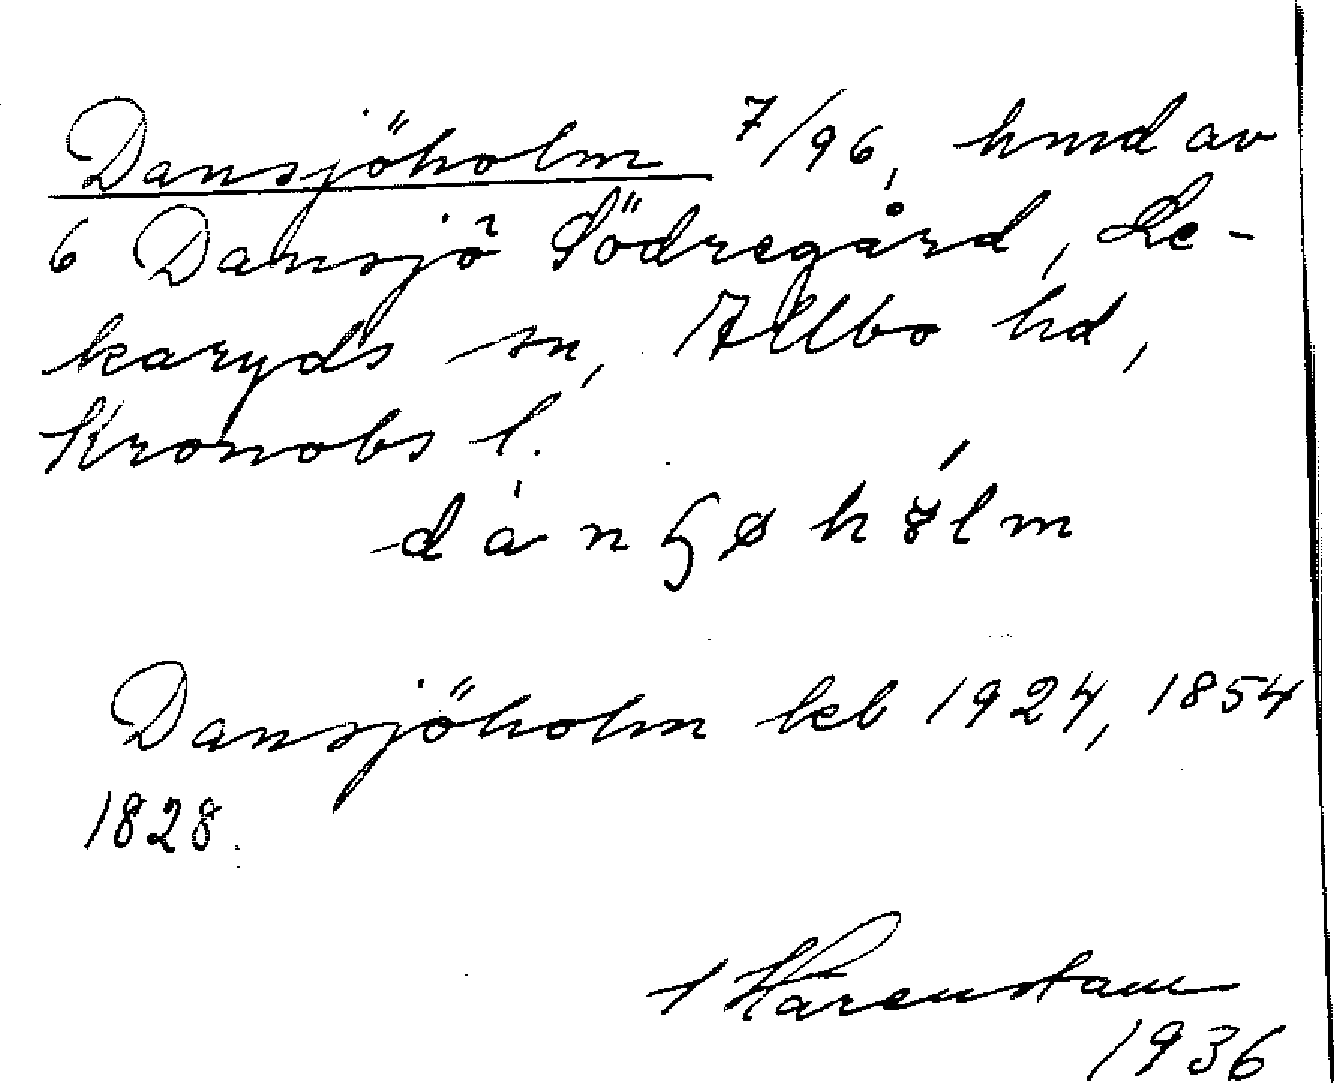 Dansjöholm 7/96, hmd av
6 Dansjö Södregård, Le-
karyds sn, Allbo hd,
Kronobs l.
Dansjöholm kb 1924, 1854
1828.
1936